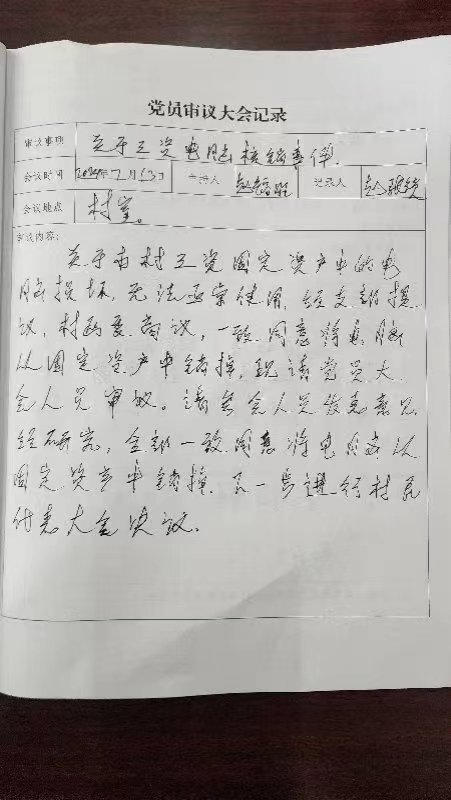 党员审议大会记录
审议事项 关于三资电脑核销事件.
会议时间 2024年7月13日 主持人 记录人
会议地点 村室。
审议内容:
关于由村三资固定资产中的电
脑损坏,无法正常使用,经支部提
议,村两委商议,一致同意将电脑
从固定资产中销掉,现请党员大
会人员审议。请参会人员发表意见
经研究,全部一致同意将电脑从
固定资产中销掉,下一步进行村民
代表大会决议。